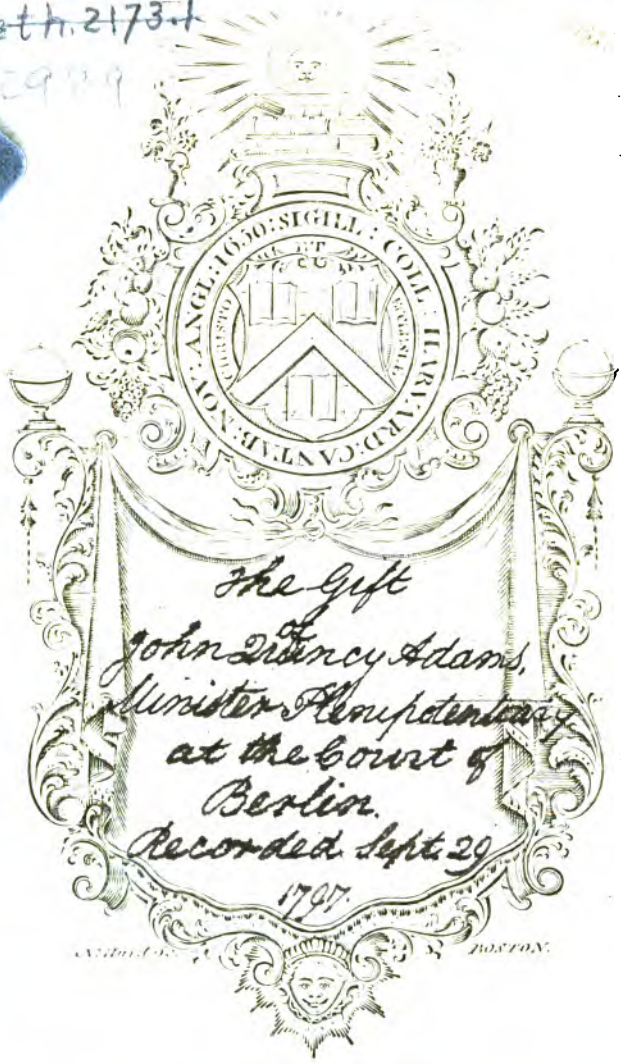 eth.2173.1
SIGILL : COLL : HARVARD : CANTAB : NOV : ANGL : 1650 :
CHRISTO ET ECCLESIÆ
The Gift
of
John Quincy Adams,
Minister Plenipotentiary
at the Court of
Berlin.
Recorded Sept. 29
1797.
BOSTON.